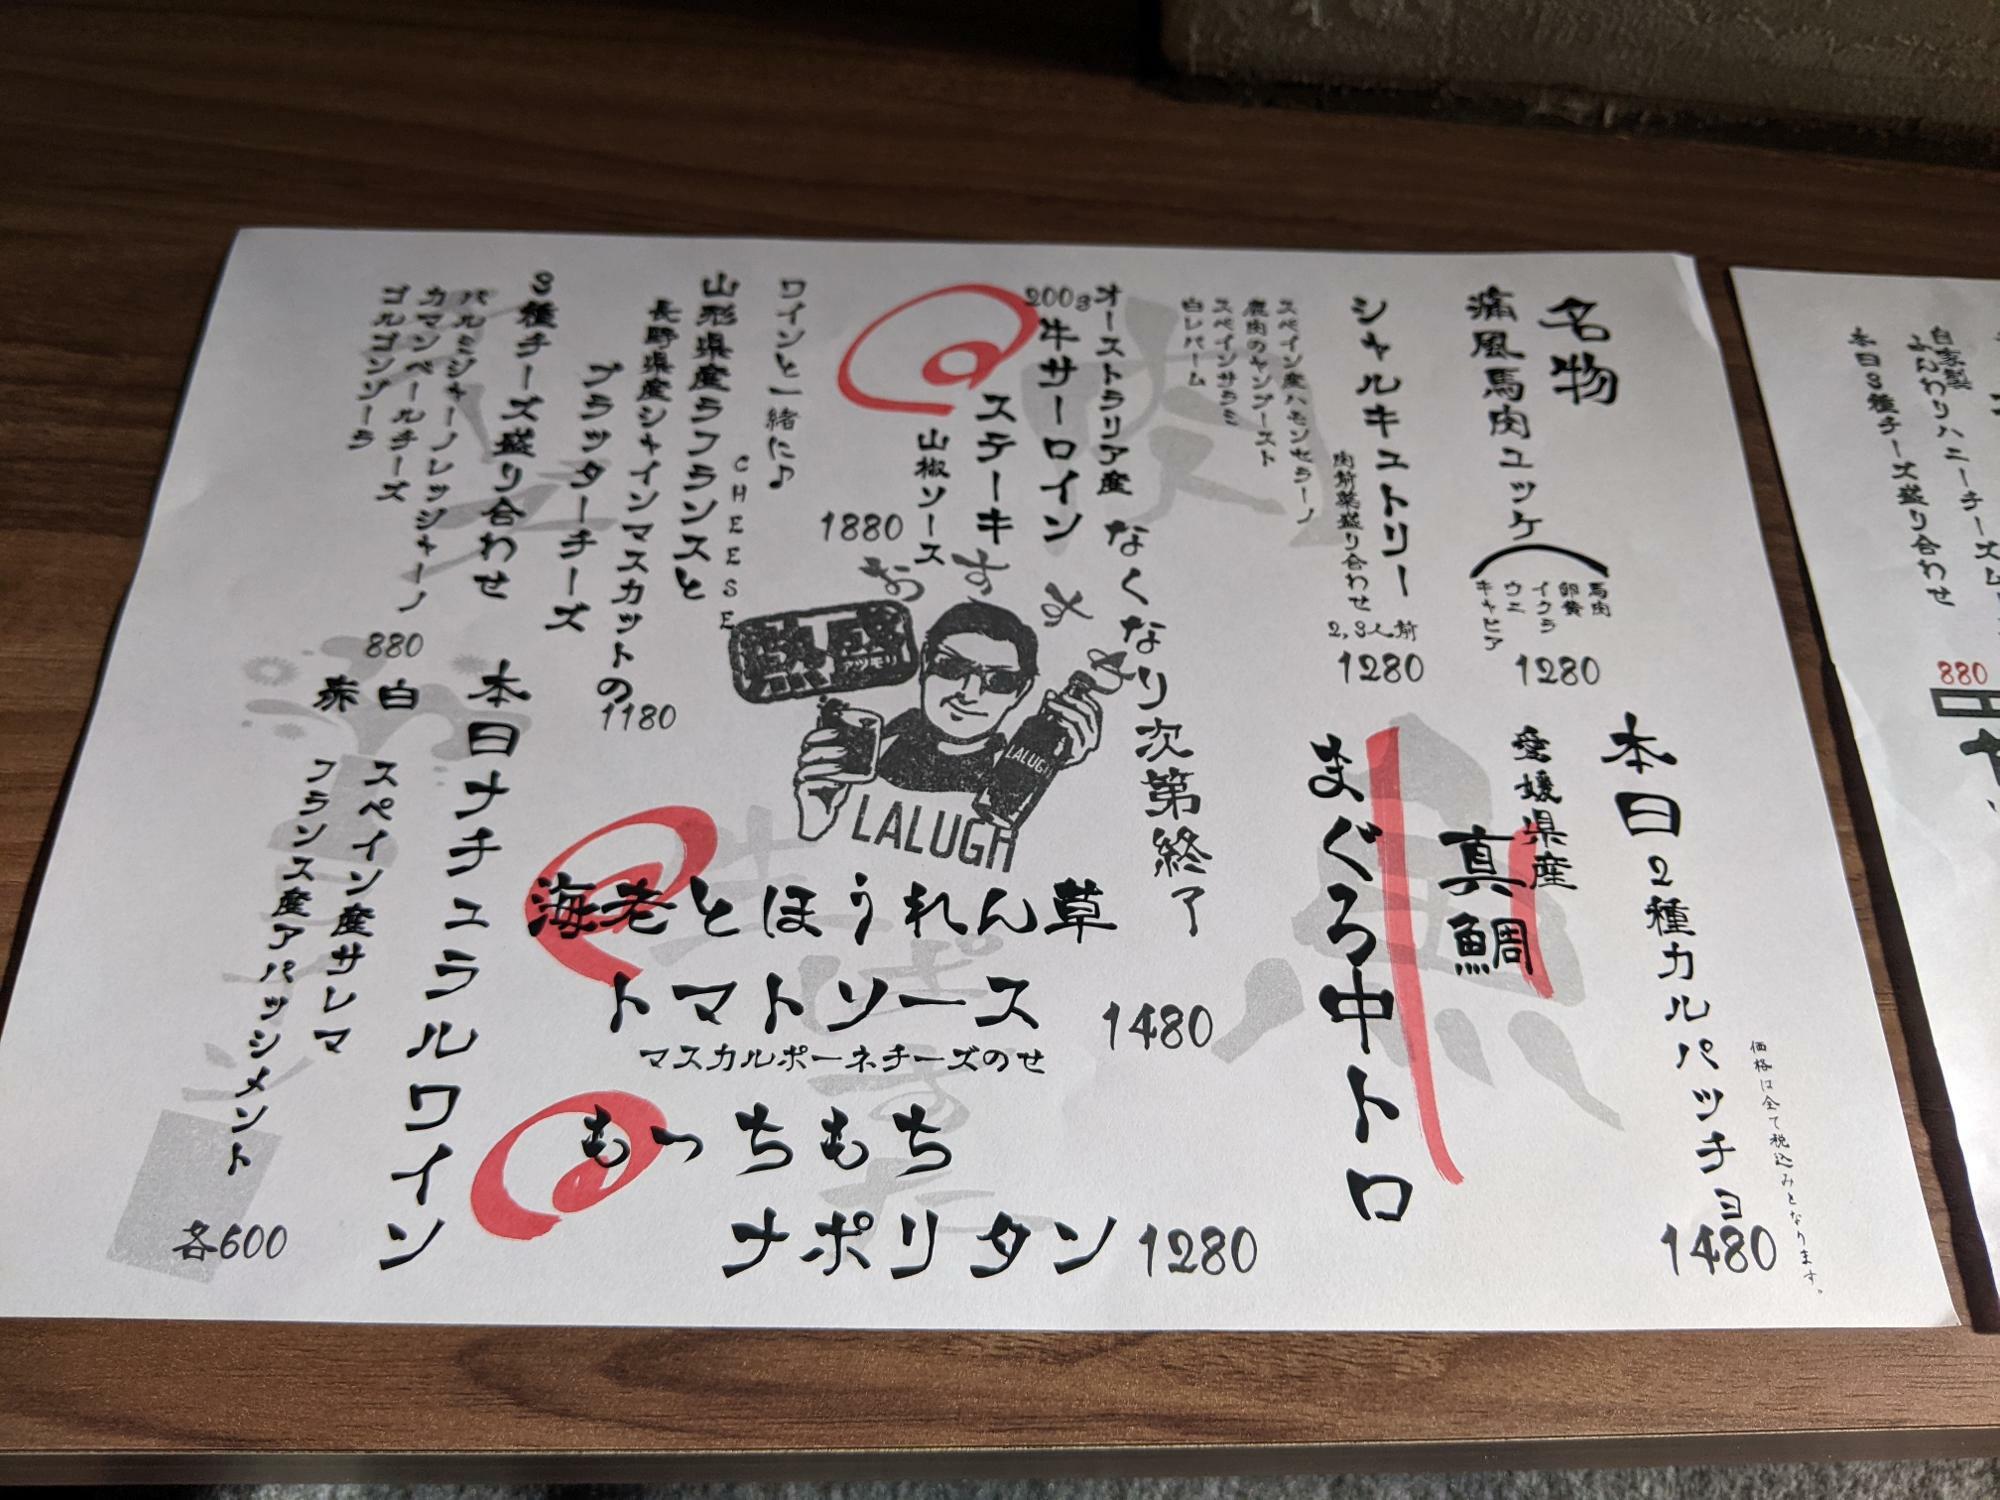 名物
痛風馬肉ユッケ
馬肉
卵黄
イクラ
ウニ
キャビア
1280
シャルキュトリー
肉前菜盛り合わせ
2,3人前
1280
スペイン産ハモンセラーノ
鹿肉のヤンブースト
スペインサラミ
白レバーム
肉
オーストラリア産
200g牛サーロイン
ステーキ
山椒ソース
1880
ワインと一緒に♪
CHEESE
山形県産ラフランスと
長野県産シャインマスカットの
ブラッターチーズ
1180
3種チーズ盛り合わせ
パルミジャーノレッジャーノ
カマンベールチーズ
ゴルゴンゾーラ
880
おすすめ
なくなり次第終了
LALUGH
LALUGH
本日2種カルパッチョ
愛媛県産
真鯛
まぐろ中トロ
1480
価格は全て税込みとなります。
魚
海老とほうれん草
トマトソース
マスカルポーネチーズのせ
1480
もっちもち
ナポリタン
1280
生ぱすた
本日ナチュラルワイン
白 スペイン産サレマ
赤 フランス産アパッシメント
各600
自家製
ふんわりハニーチーズム
本日3種チーズ盛り合わせ
880